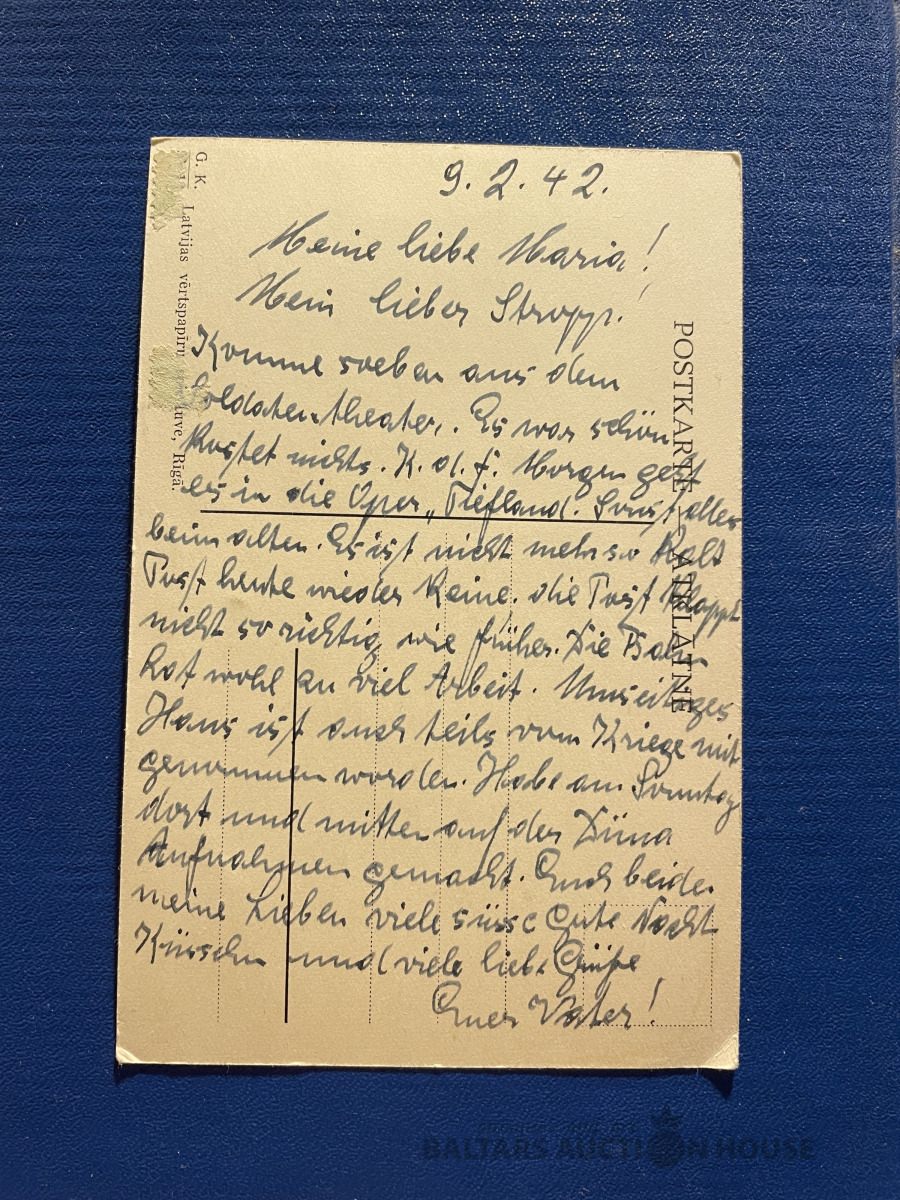 9.2.42.
Meine liebe Maria!
Mein lieber Stropp!
Komme soeben aus dem
Soldatentheater. Es war schön
Kostet nichts. K.d.F. Morgen geht
es in die Oper „Tiefland. Sonst alles
beim alten. Es ist nicht mehr so kalt
Post heute wieder keine. die Post klappt
nicht so richtig wie früher. Die Bahn
hat wohl zu viel Arbeit. Umseitiges
Haus ist auch teils vom Kriege mit
genommen worden. Habe am Sonntag
dort und mitten auf der Düna
Aufnahmen gemacht. Euch beiden
meine Lieben viele süsse Gute Nacht
Küsschen und viele liebe Grüße
Euer Vater!
POSTKARTE — ATKLĀTNE
G. K. Latvijas vērtspapīru Rīgā.
BALTARS AUCTION HOUSE